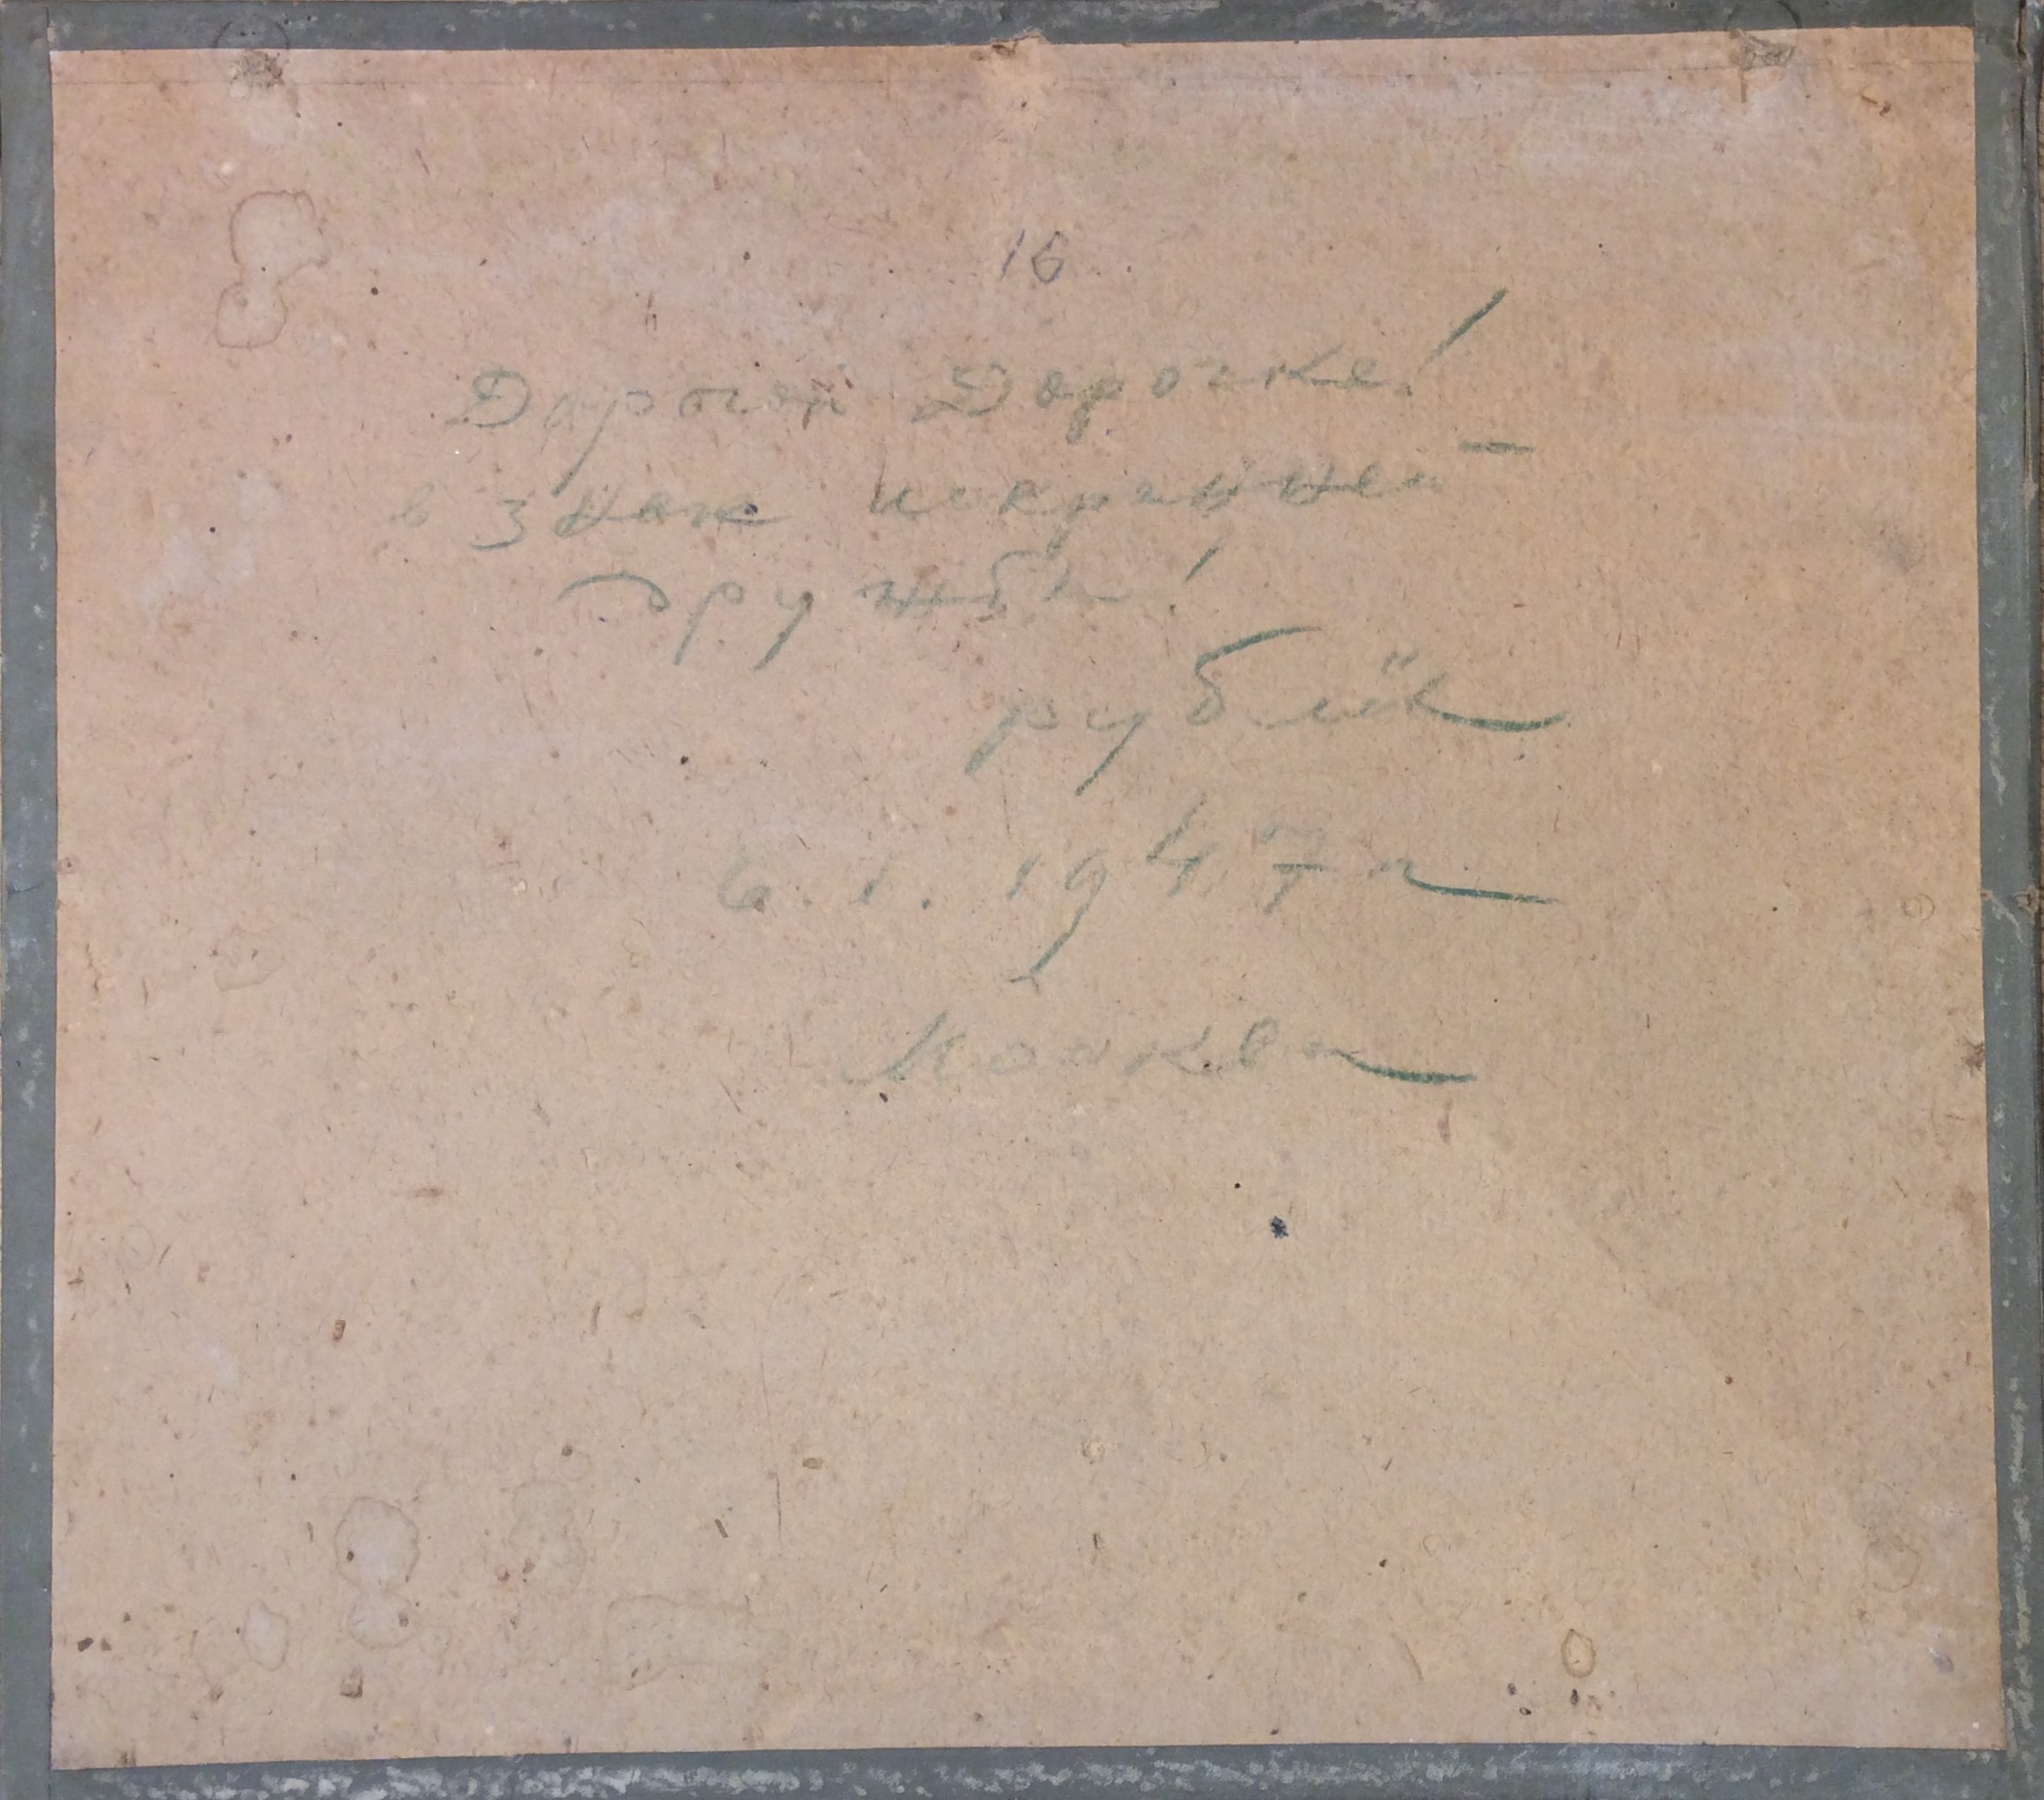 16
Дорогой Дорочке!
в знак искренней
дружбы!
рублёв
6. 1. 1947 г
Москва